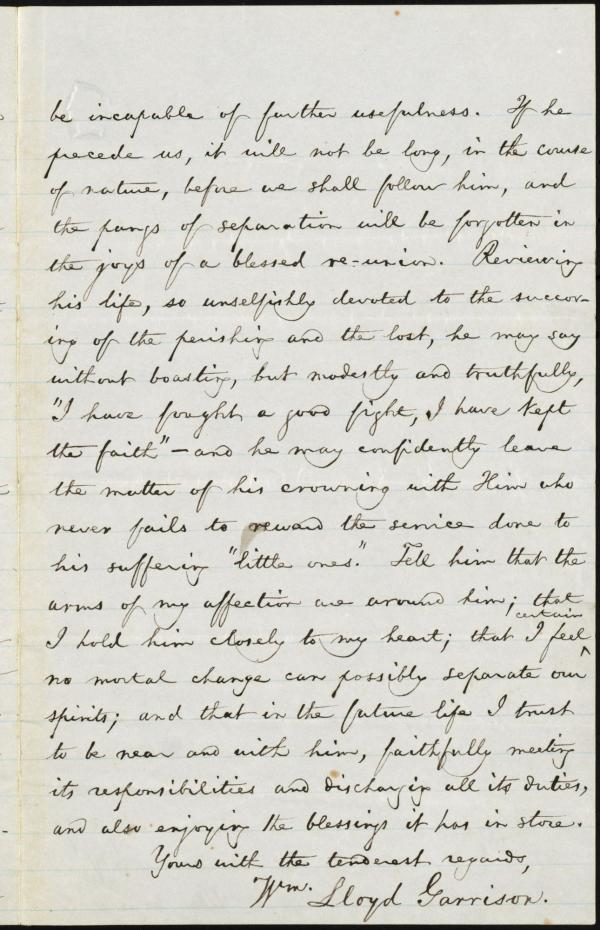 be incapable of further usefulness. If he
precede us, it will not be long, in the course
of nature, before we shall follow him, and
the pangs of separation will be forgotten in
the joys of a blessed re-union. Reviewing
his life, so unselfishly devoted to the succor-
ing of the perishing and the lost, he may say
without boasting, but modestly and truthfully,
"I have fought a good fight, I have kept
the faith" — and he may confidently leave
the matter of his crowning with Him who
never fails to reward the service done to
his suffering "little ones." Tell him that the
arms of my affection are around him; that
certain
I hold him closely to my heart; that I feel ^
no mortal change can possibly separate our
spirits; and that in the future life I trust
to be near and with him, faithfully meeting
its responsibilities and discharging all its duties,
and also enjoying the blessings it has in store.
Yours with the tenderest regards,
Wm. Lloyd Garrison.